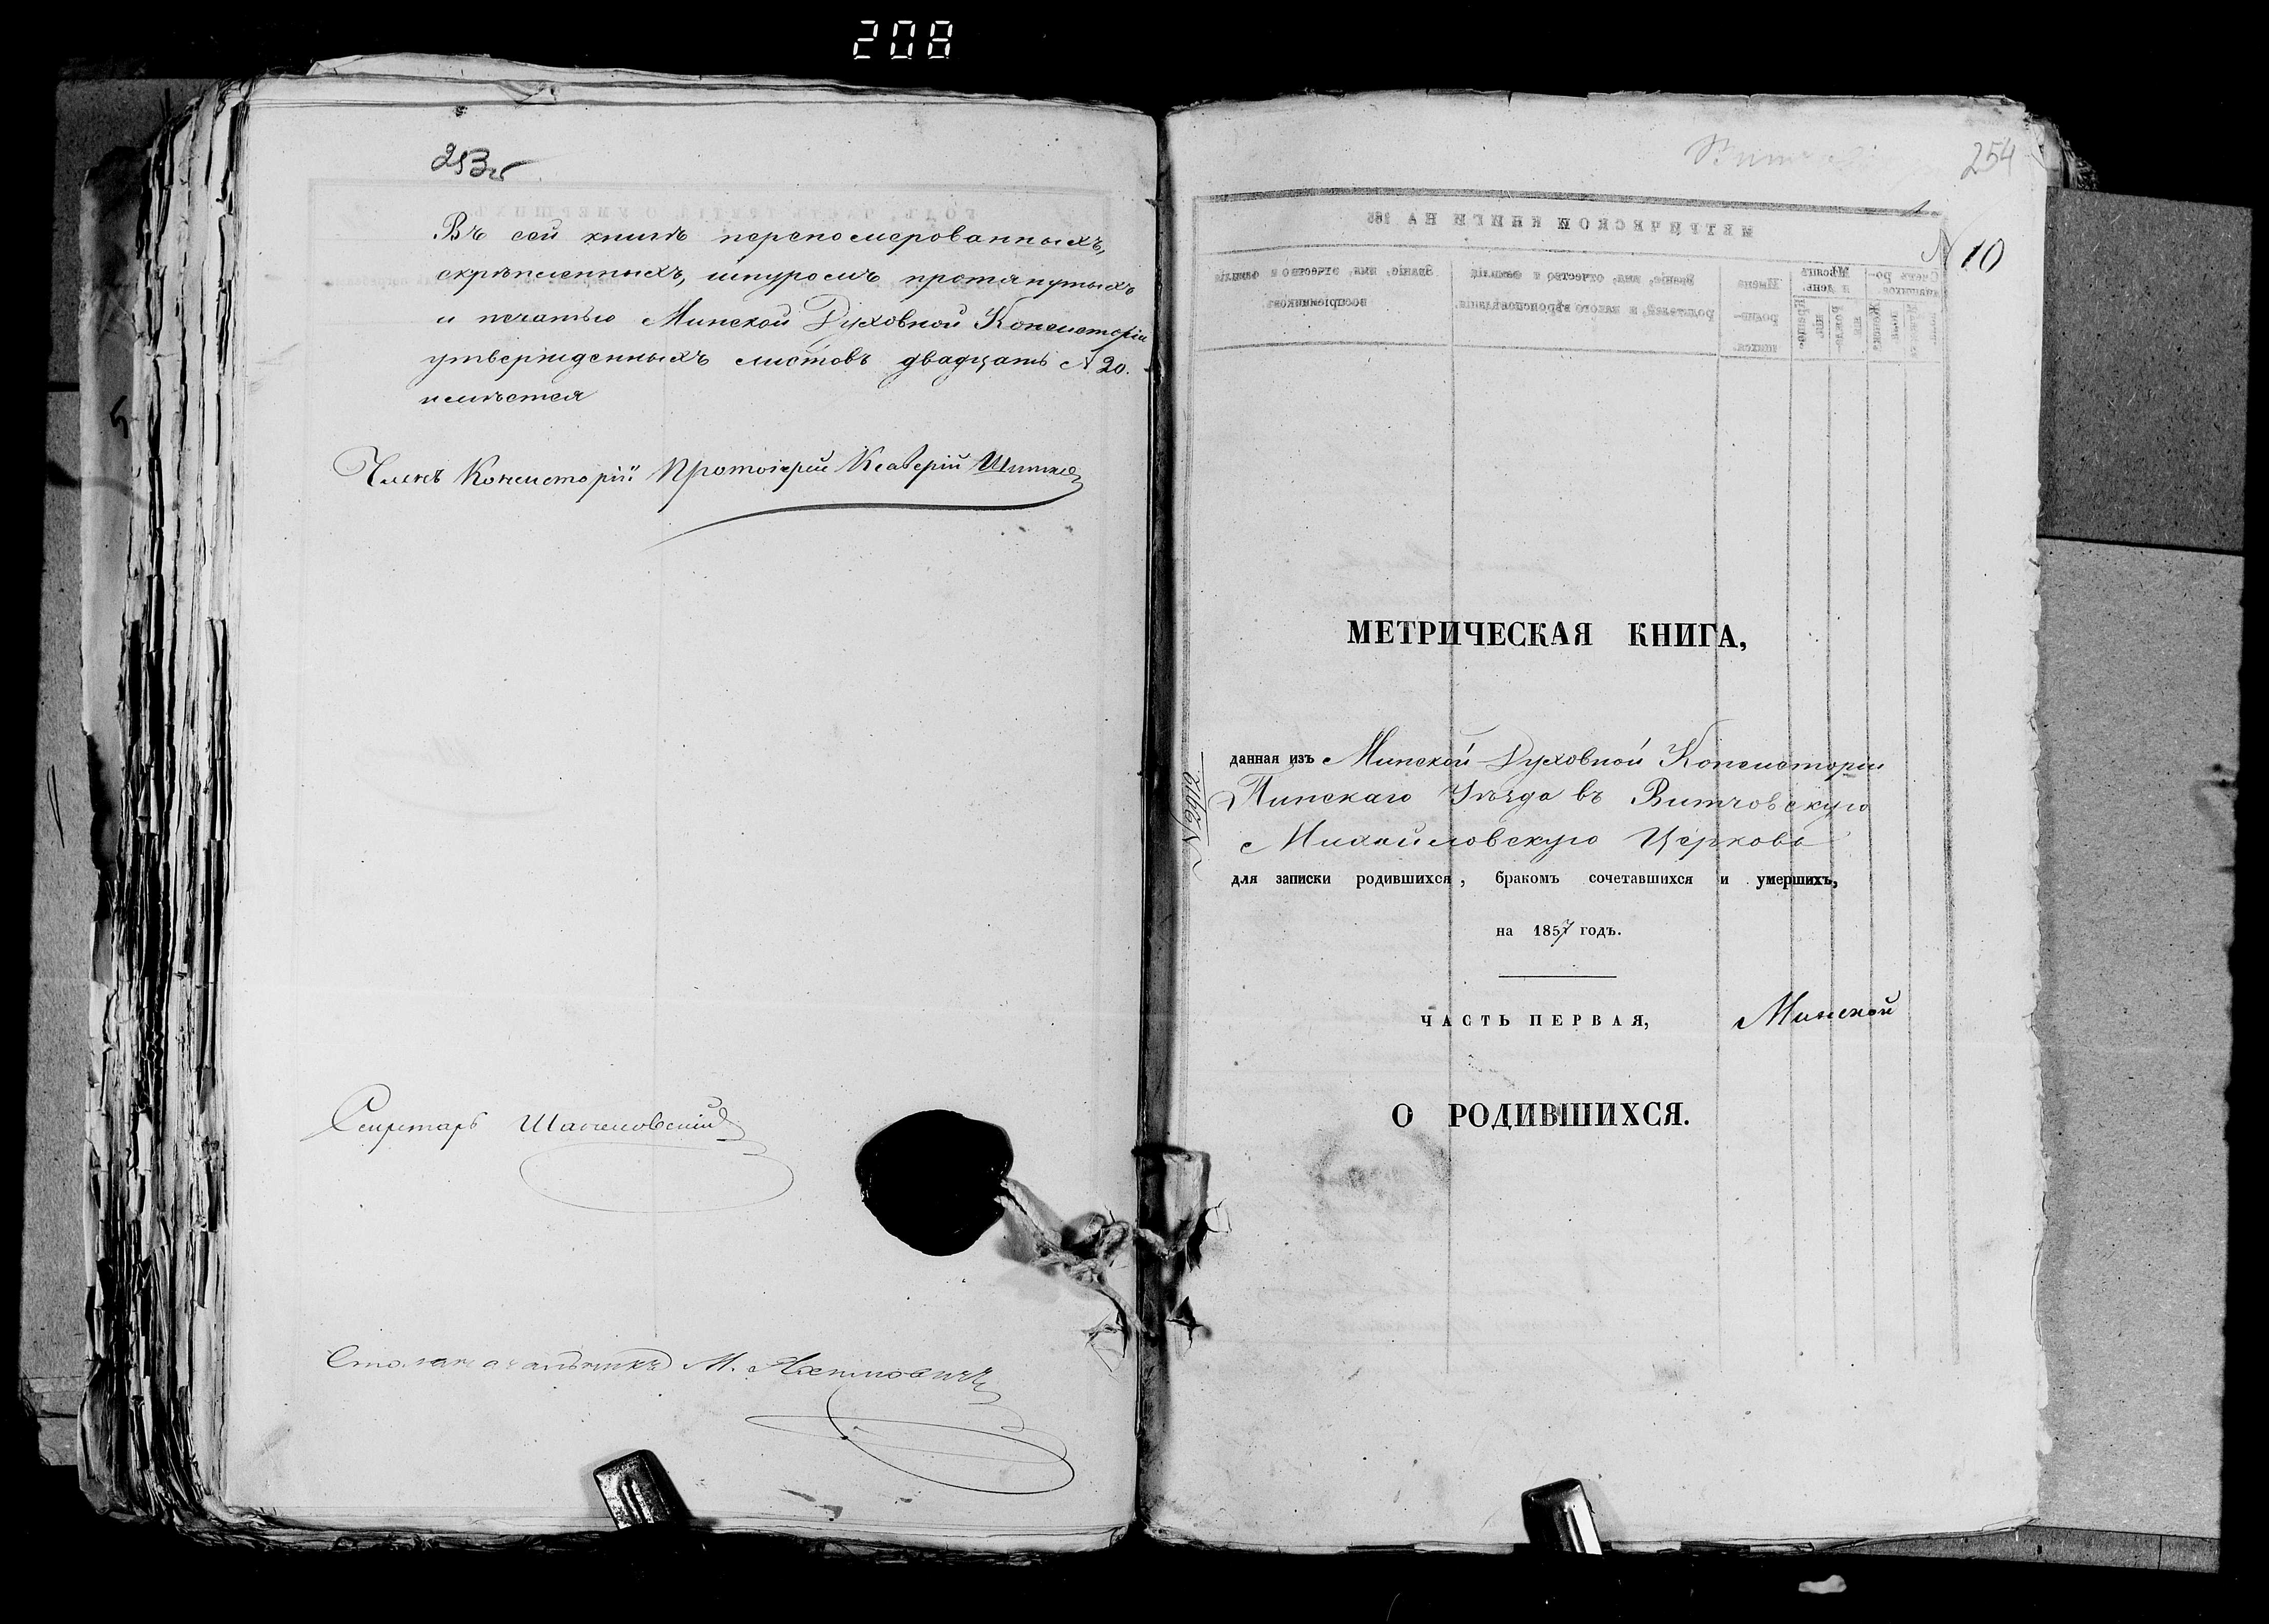 208
253
Въ сей книгѣ перепомерованныхъ,
скрѣпленныхъ, шнуромъ протянутыхъ
и печатью Минской Духовной Консисторіи
утвержденныхъ листовъ двадцать № 20.
имѣется
Членъ Консисторіи Протоіерей Ксаверій
Секретарь
Столоначальникъ М.
254
№ 10
МЕТРИЧЕСКАЯ КНИГА,
данная изъ Минской Духовной Консисторіи
Пинскаго Уѣзда въ Витчовскую
Михайловскую Церковь
для записки родившихся, бракомъ сочетавшихся и умершихъ,
на 1857 годъ.
ЧАСТЬ ПЕРВАЯ, Минской
О РОДИВШИХСЯ.